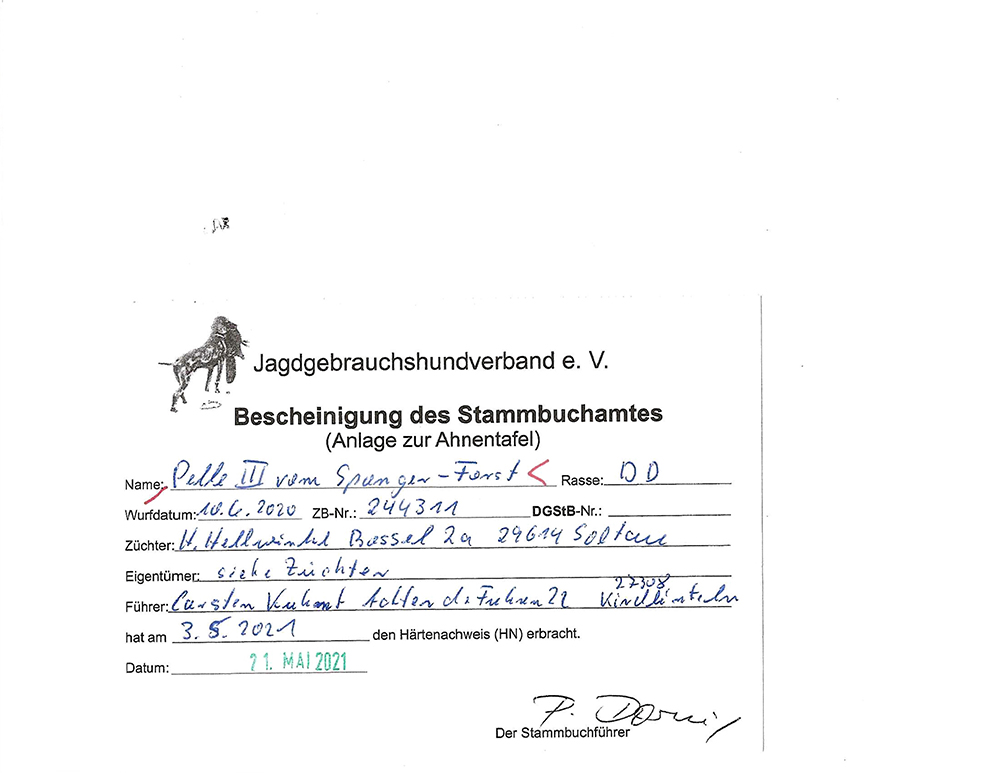 Jagdgebrauchshundverband e. V.
Bescheinigung des Stammbuchamtes
(Anlage zur Ahnentafel)
Name: Pelle III vom Spanger-Forst Rasse: DD
Wurfdatum: 10.6.2020 ZB-Nr.: 244311 DGStB-Nr.:
Züchter: H. Hellwinkel Bassel 2a 29614 Soltau
Eigentümer: siehe Züchter
27308
Führer: Carsten d. Fuhren 22 Kirchlinteln
hat am 3.5.2021 den Härtenachweis (HN) erbracht.
Datum: 21. MAI 2021
P.
Der Stammbuchführer